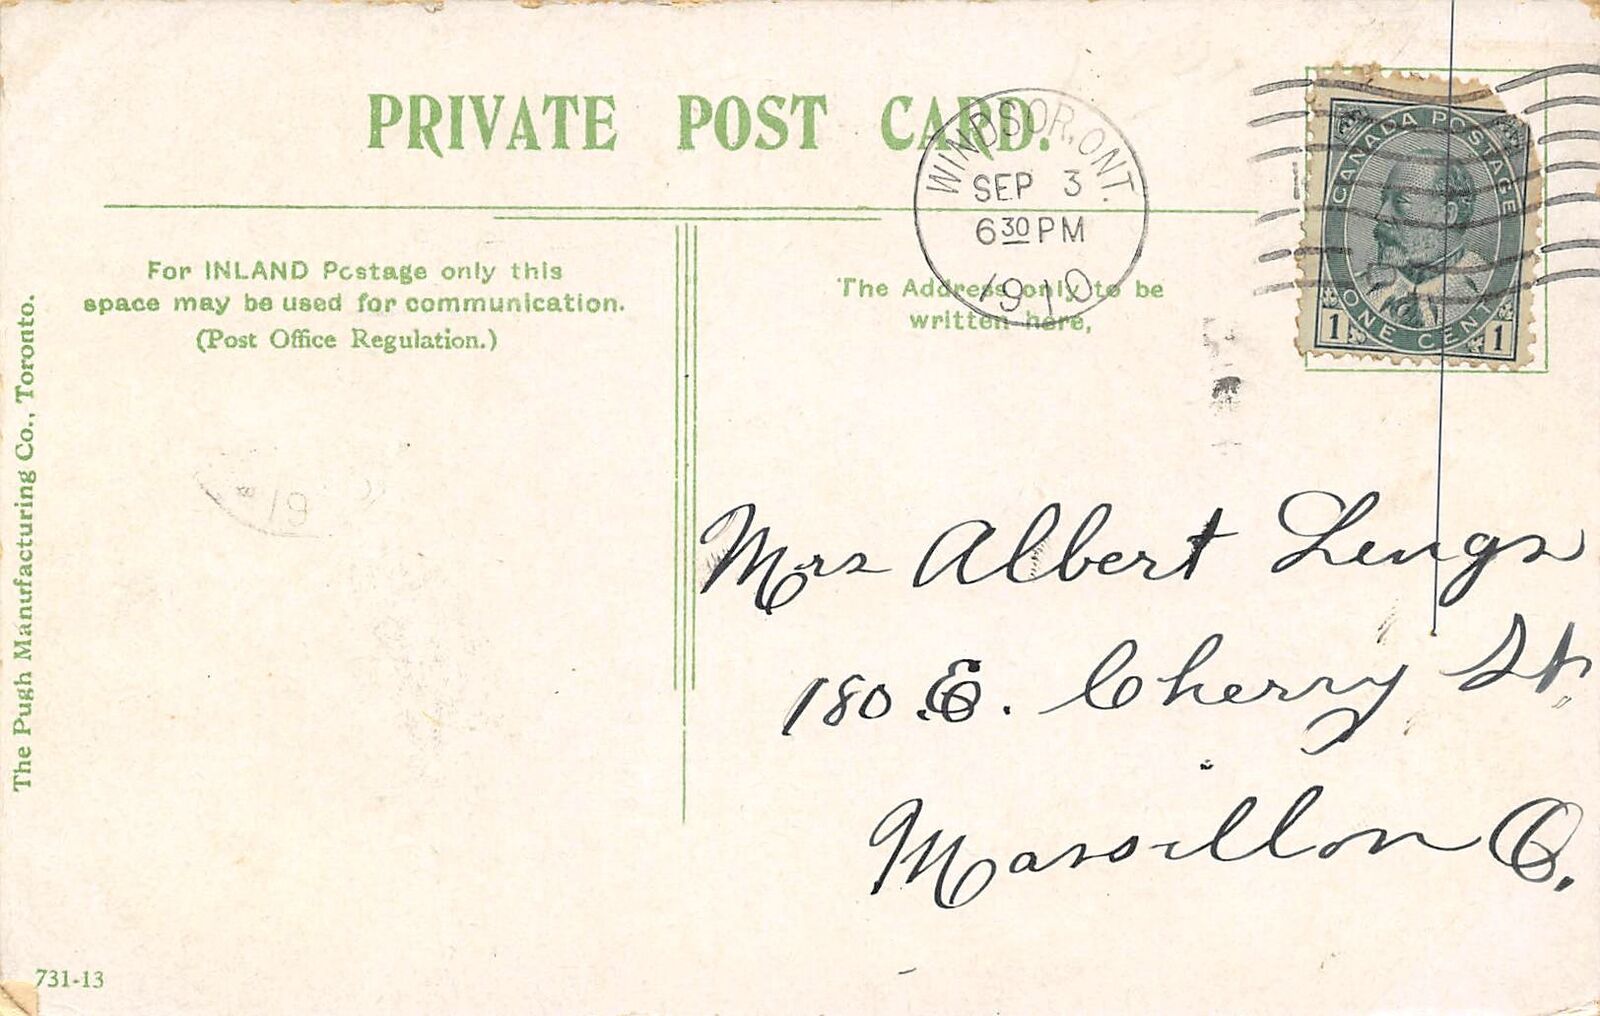 PRIVATE POST CARD.
WINDSOR, ONT.
SEP 3
6 30 PM
1910
CANADA POSTAGE
ONE CENT
1 1
For INLAND Postage only this
space may be used for communication.
(Post Office Regulation.)
The Address only to be
written here,
Mrs Albert Lengs
180 E. Cherry St.
Massillon O.
The Pugh Manufacturing Co., Toronto.
731-13